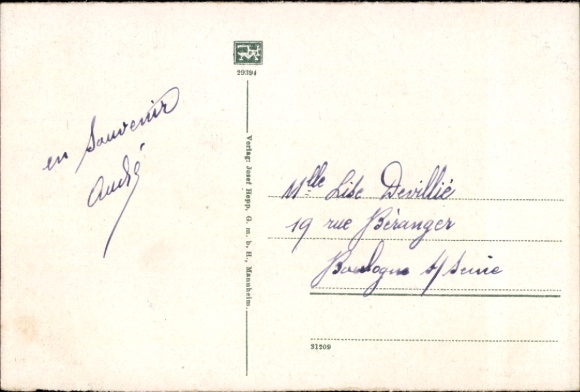 29394
en Souvenir
André
Verlag: Josef Hepp, G. m. b. H., Mannheim.
Mlle Lise Devillié
19 rue Béranger
Boulogne s/ Seine
31209